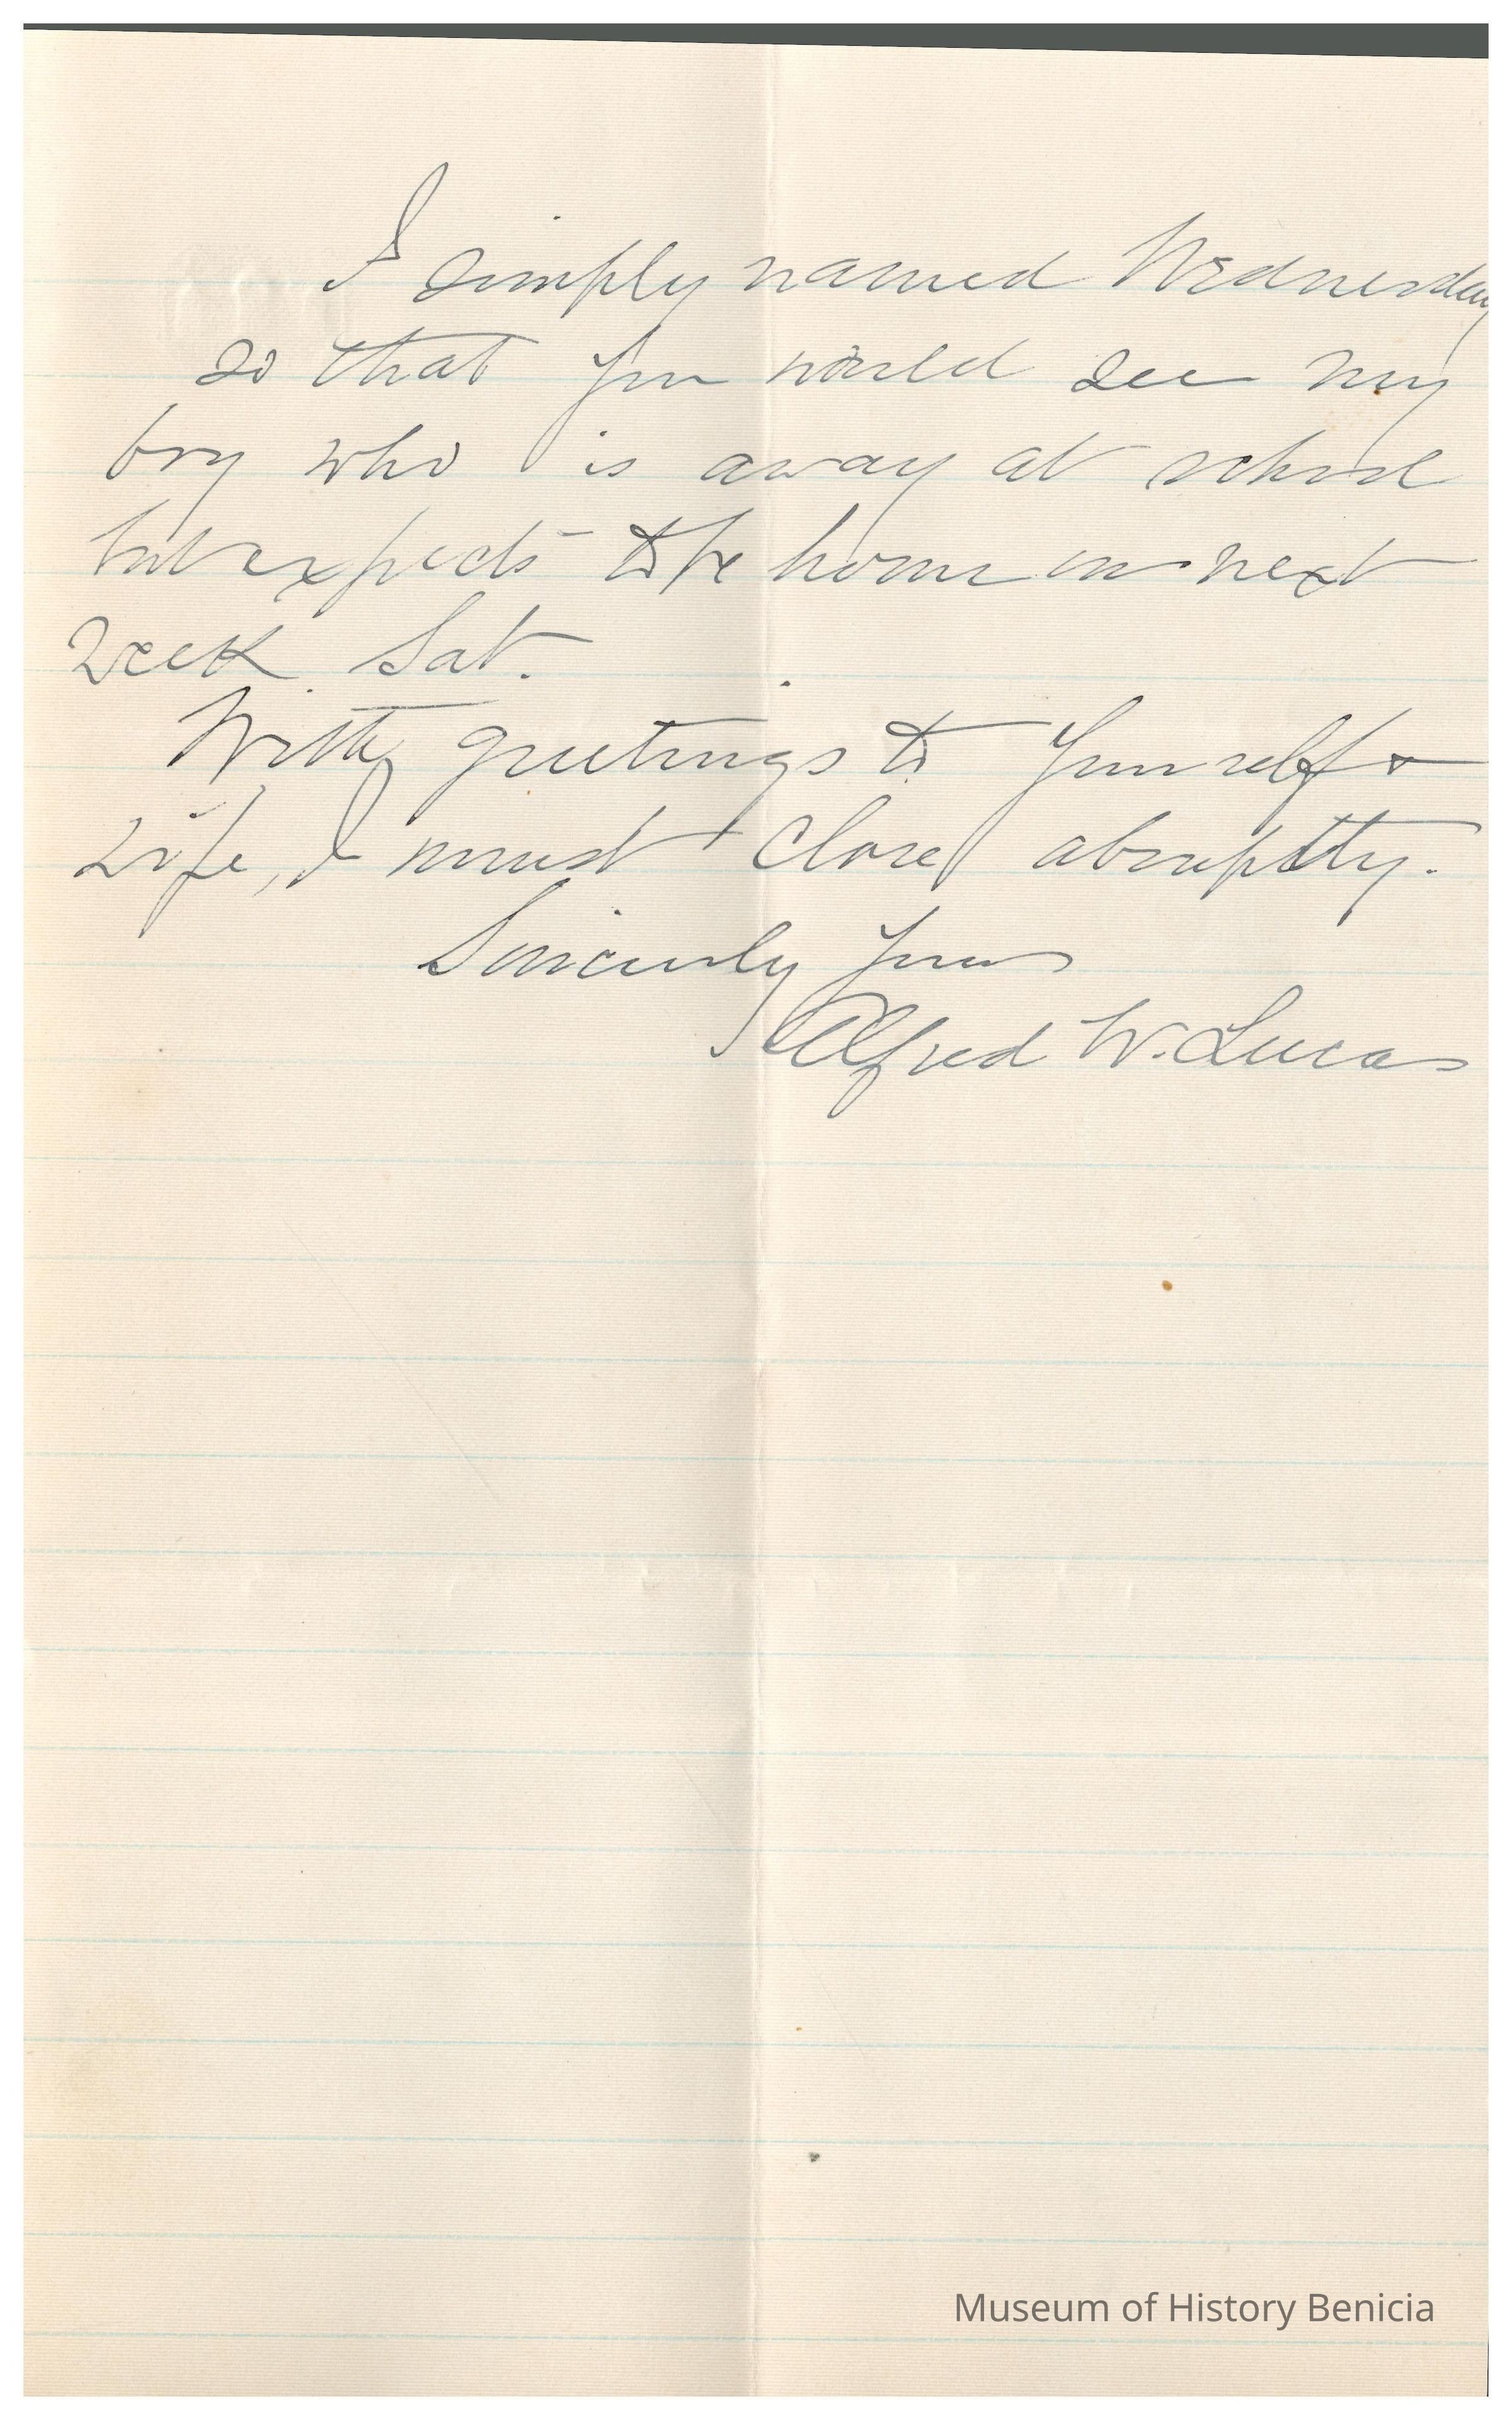 I simply named Wednesday
so that you would see my
boy who is away at school
but expects to be home on next
week Sat.
With greetings to yourself &
wife, I must close abruptly.
Sincerely yours
Alfred W. Lucas
Museum of History Benicia